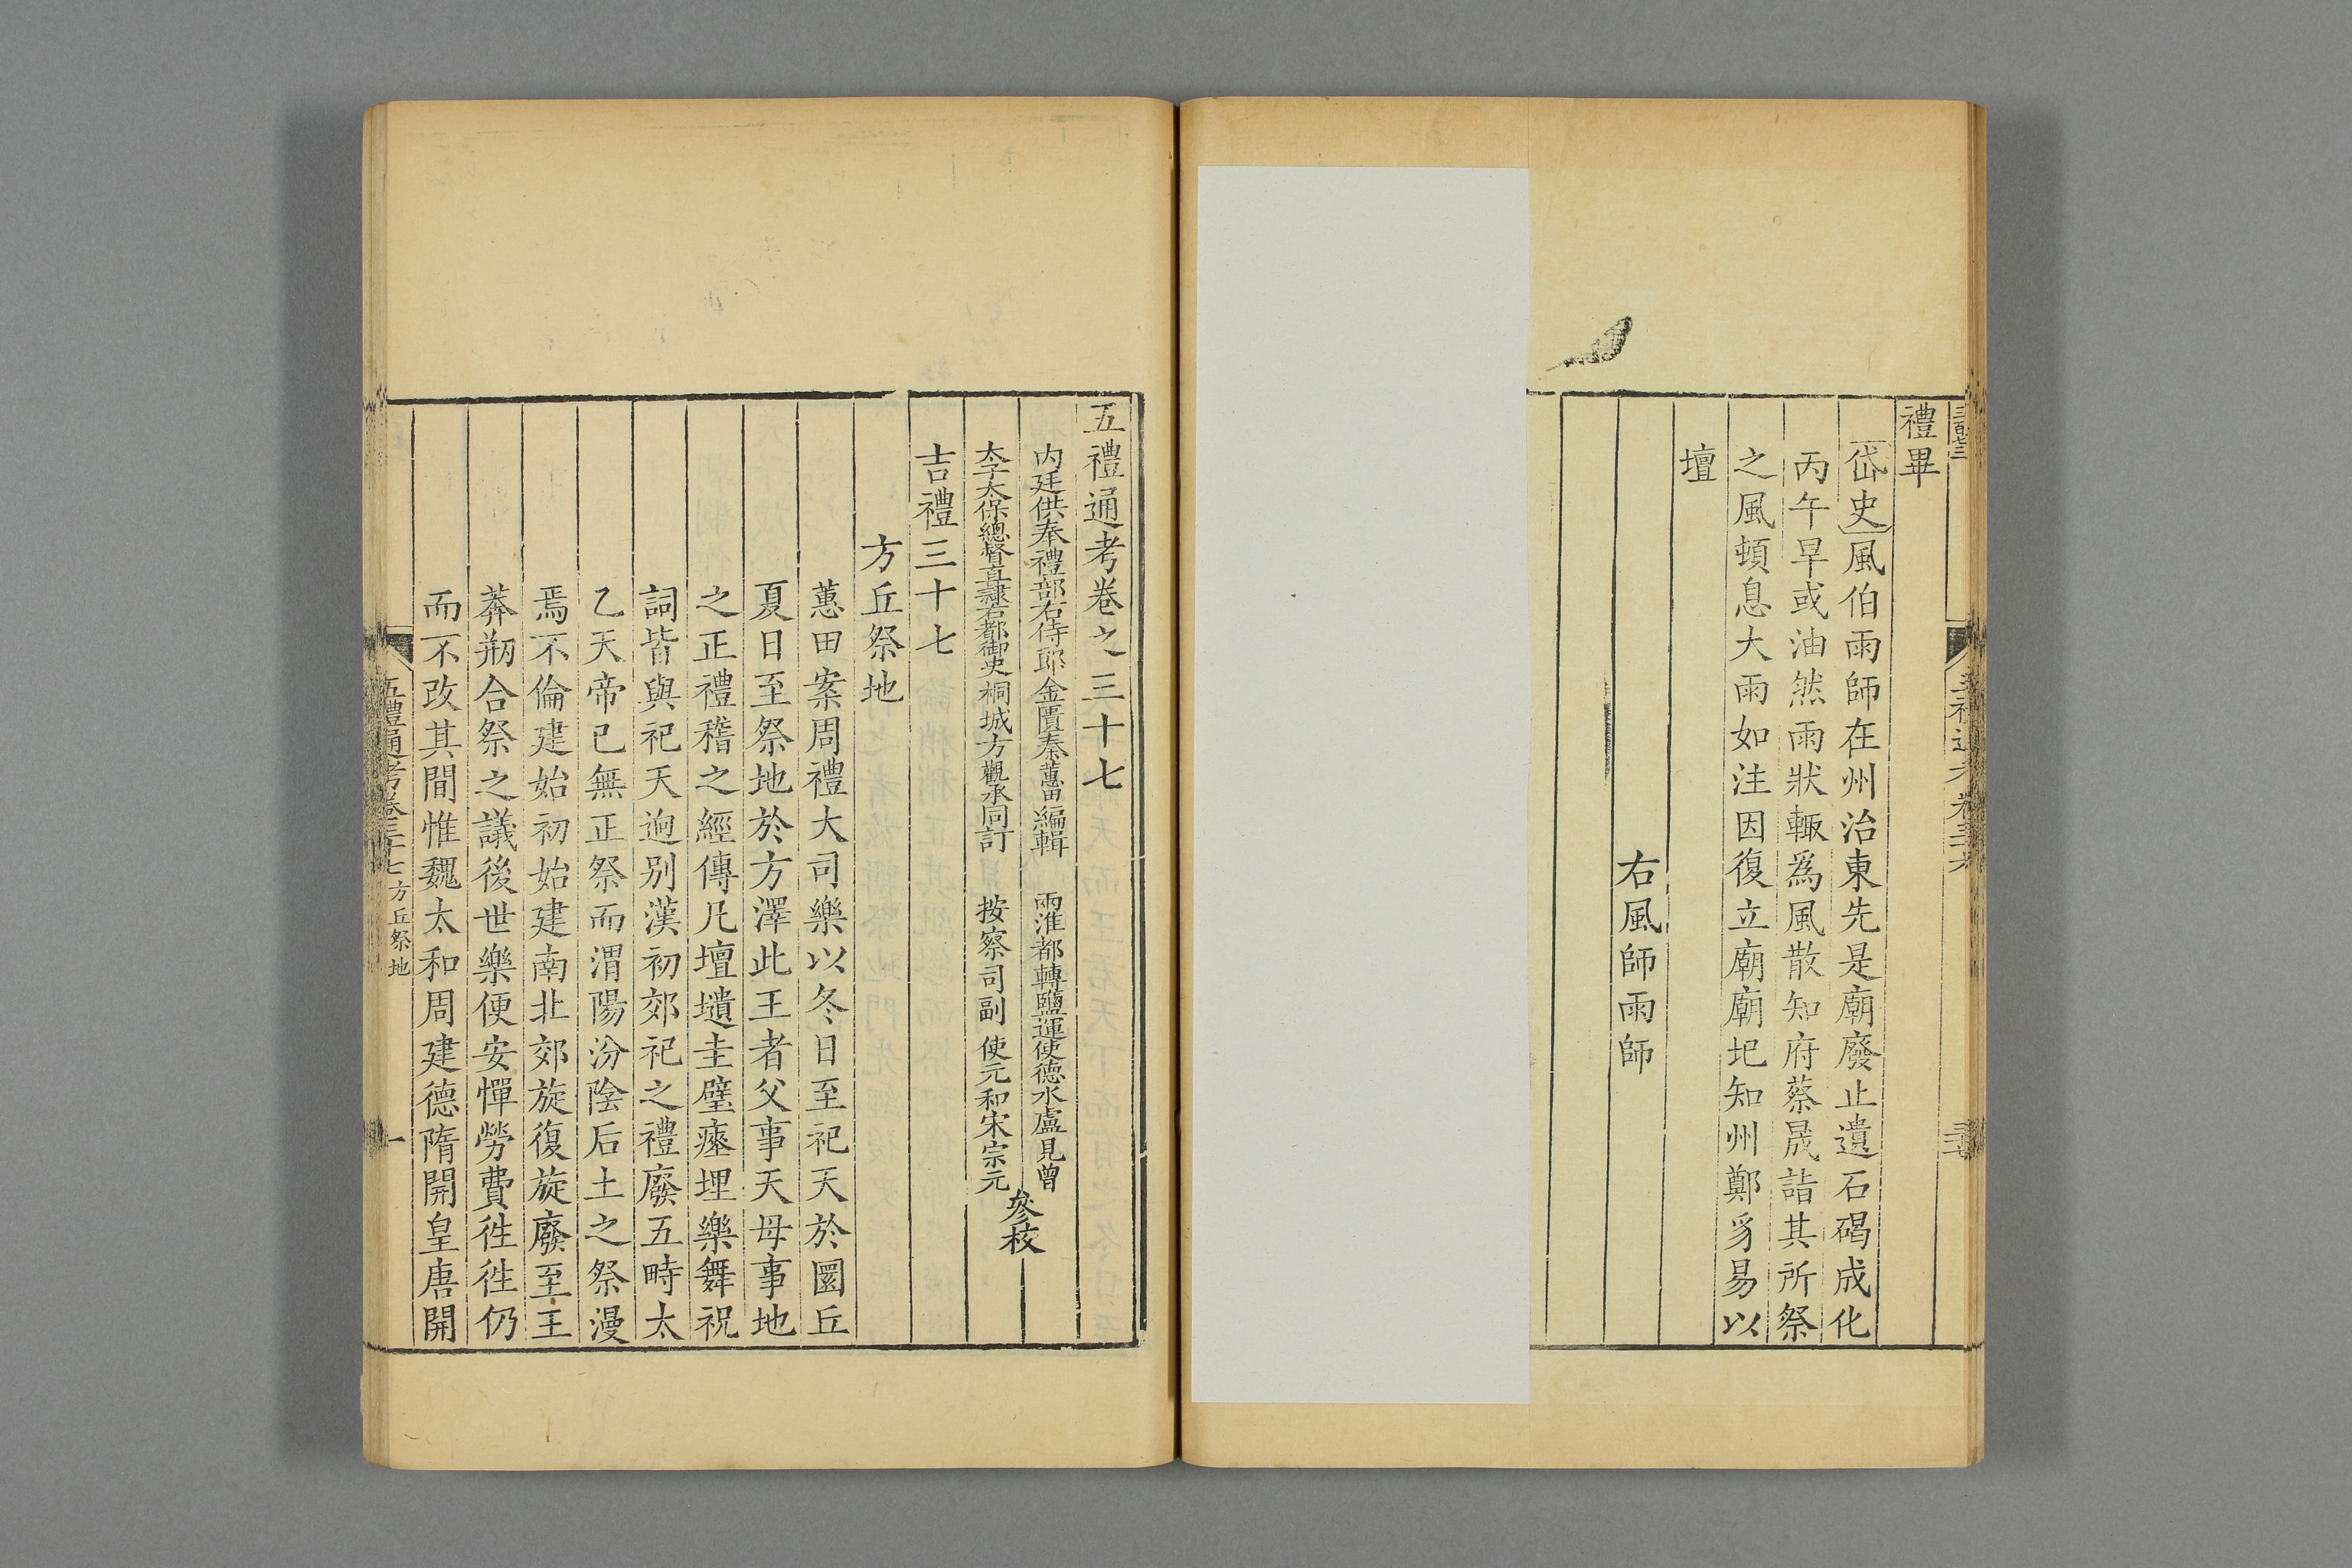 三百七三
禮畢
岱史風伯雨師在州治東先是廟廢止遺石碣成化
丙午旱或油然雨狀輒爲風散知府蔡晟詣其所祭
之風頓息大雨如注因復立廟廟圯知州鄭豸易以
壇
右風師雨師
五禮通考卷三十六
五禮通考卷之三十七
内廷供奉禮部右侍郎金匱秦蕙田編輯 兩淮都轉鹽運使德水盧見曾
太子太保總督直隸右都御史桐城方觀承同訂 按察司副使元和宋宗元
參校
吉禮三十七
方丘祭地
蕙田案周禮大司樂以冬日至祀天於圜丘
夏日至祭地於方澤此王者父事天母事地
之正禮稽之經傳凡壇壝圭璧瘞埋樂舞祝
詞皆與祀天逈别漢初郊祀之禮廢五畤太
乙天帝已無正祭而渭陽汾陰后土之祭漫
焉不倫建始初始建南北郊旋復旋廢至王
莽剏合祭之議後世樂便安憚勞費徃徃仍
而不改其間惟魏太和周建德隋開皇唐開
五禮通考卷三十七 方丘祭地 一